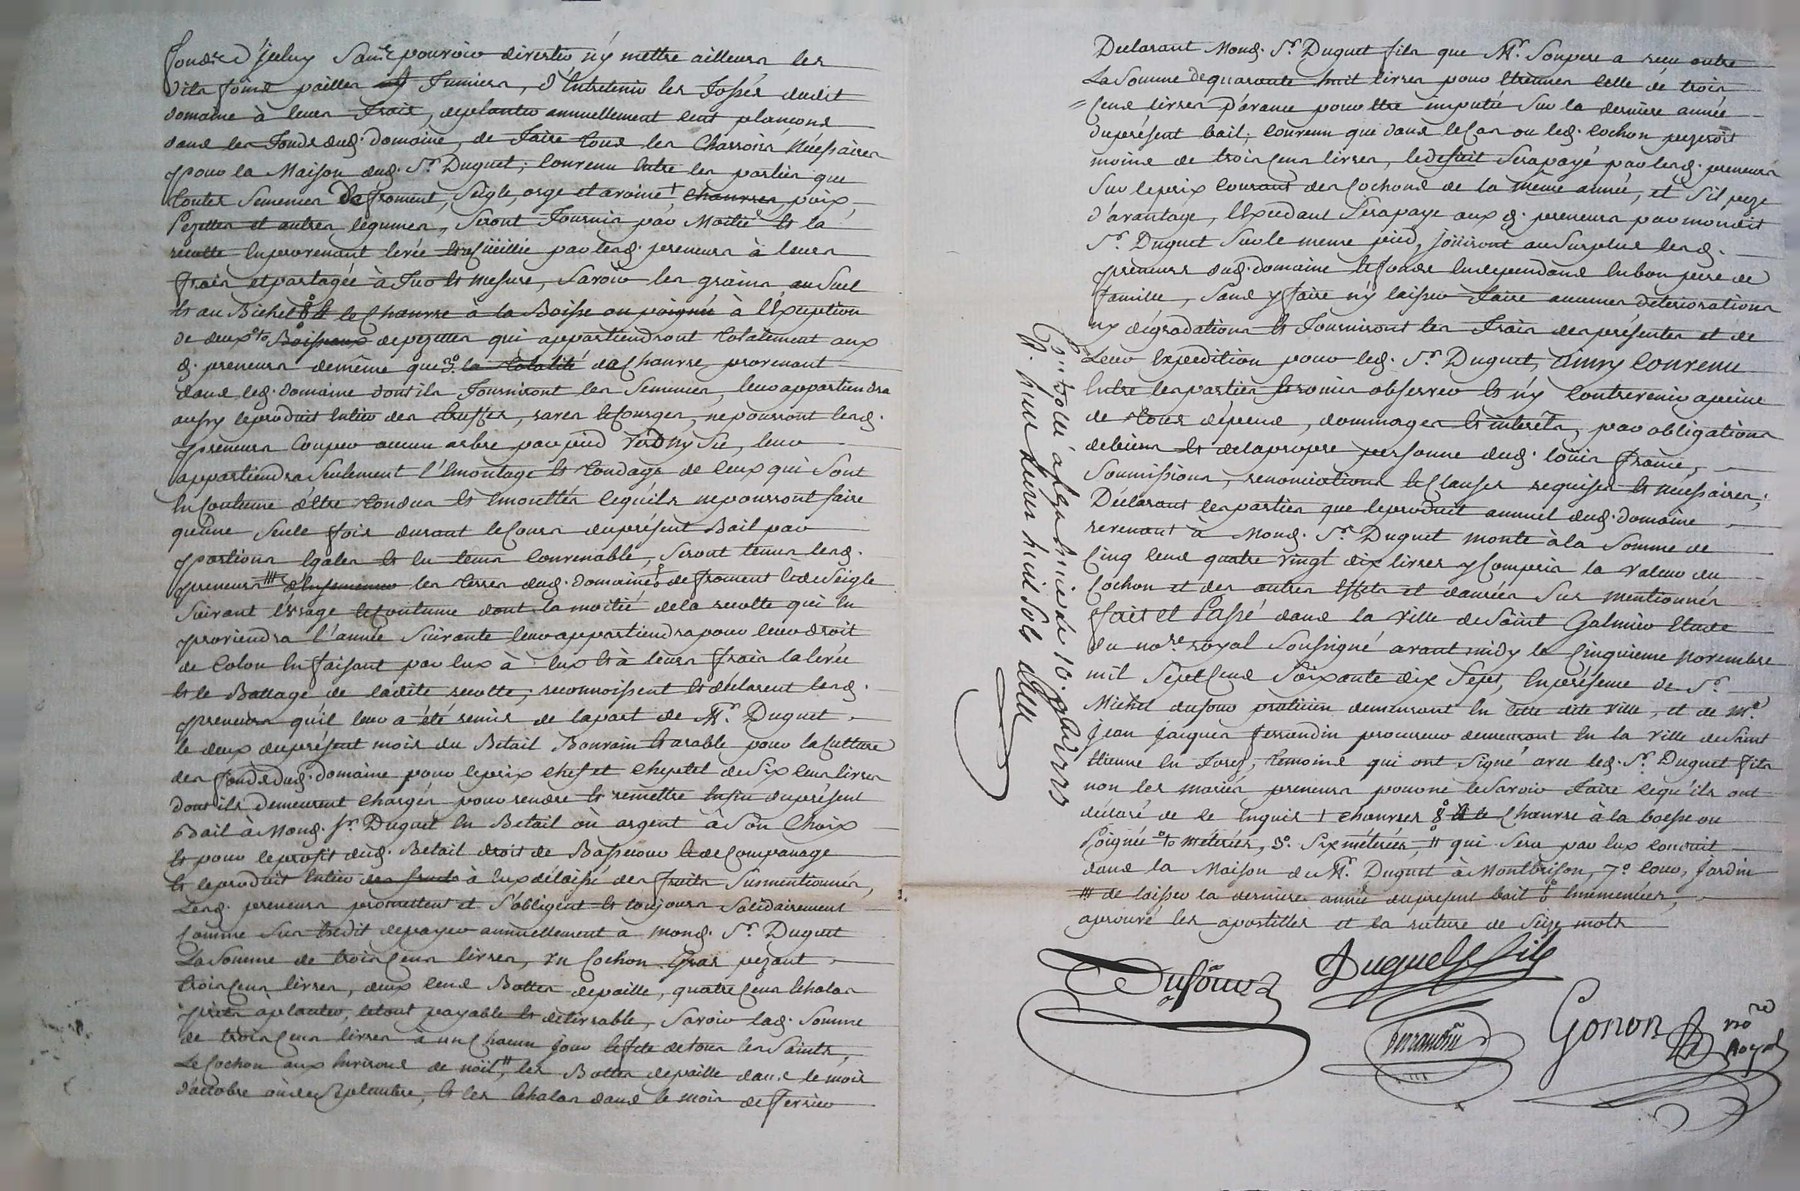 fonds d'jceluy sans pouvoir divertir n'y mettre ailleurs les
dits foins pailles et fumiers, d'Entretenir les fossés dudit
domaine à leurs frais, de planter annuellement cent plançons
dans les fonds dud. domaine, de faire tous les Charrois nécéssaires
pour la Maison dud. Sr. Duguet; Convenu Entre les parties que
toutes Semences de froment, Seigle, orge et avoine, † chanvres, poix,
Pezettes et autres legumes, Seront fournis par Moitié Et la
récolte En provenant levée Et ceüeillie par lesd. preneurs à leurs
frais et partagée à Suo Et Mesure, Savoir les grains au Suel
Et au Bichet 8° et le Chanvre à la Boisse ou poignée à l'Exception
de deux to Boisseaux de pezettes qui appartiendront totalement aux
d. preneurs de même que 3° la totalité du Chanvre, provenant
dans led. domaine dont ils fourniront les Semences, leur appartiendra
aussy le produit Entier des truffes, raves et Courges, ne pourront lesd.
preneurs Couper aucun arbre par pied verd ny Sec, leur
appartiendra Seulement l'Emontage Et tondage de Ceux qui Sont
En Coutume d'être tondus Et Emouttés ce qu'ils ne pourront faire
qu'une Seule fois durant le Cours du présent Bail par
portions Egales Et En tems Convenable, Seront tenus lesd.
preneurs ⧻ d'Ensemencer les terres dud. domaine 6° de froment Et de Seigle
Suivant l'Usage et Coutume dont la moitié de la récolte qui En
proviendra l'année Suivante leur appartiendra pour leur droit
de Colon En faisant par Eux à Eux Et à leurs frais la levée
Et le Battage de ladite récolte; reconnoissent Et déclarent lesd.
preneurs qu'il leur a été remis de la part de Mr. Duguet
le deux du présent mois du Betail Bouvain Et arable pour la Culture
des fonds dud. domaine pour le prix chef et cheptel de Six Cens livres
dont ils demeurent Chargés pour rendre Et remettre En fin du présent
Bail à Mond. Sr. Duguet En Betail où argent à Son Choix
Et pour le profit dud. Betail droit de Bassecour et de Companage
Et le produit Entier des fruits à Eux délaissé des fruits Susmentionnés,
Lesd. preneurs promettent et S'obligent Et toujours Solidairement
Comme Sus Est dit de payer annuellement à Mond. Sr. Duguet
La Somme de trois Cens livres, un Cochon Gras pezant
trois Cens livres, deux Cens Bottes de paille, quatre Cens Echalas
prets à planter, le tout payable Et délivrable, Savoir lad. Somme
de trois Cens livres à un Chacun jour Et fête de tous les Saints,
Le Cochon aux Environs de noël, ⧺ les Bottes de paille dans le mois
d'octobre où de Septembre, Et les Echalas dans le mois de fevrier
Declarant Mond. Sr. Duguet fils que Mr. Son pere a reçu outre
La Somme de quarante huit livres pour Etrennes Celle de trois
Cens livres d'avance pour Etre imputée Sur la derniere année
du présent bail; Convenu que dans le Cas ou led. Cochon pezeroit
moins de trois Cens livres, le deficit Sera payé par lesd. preneurs
Sur le prix Courant des Cochons de la même année, et S'il peze
d'avantage, l'Excedant Sera payé aux d. preneurs par mondit
Sr. Duguet Sur le meme pied, Joüiront au Surplus lesd.
preneurs dud. domaine et fonds En dependans En bon pere de
famille, Sans y faire n'y laisser faire aucunes déteriorations
ny dégradations Et fourniront les frais des présentes et de
Leur Expedition pour led. Sr. Duguet, ainsy Convenu
Entre les parties promis observer Et n'y Contrevenir à peine
de tous dépens, dommages Et interêts, par obligations
de biens Et de la propre personne dud. Coüin france,
Soumissions, renonciations Et Clauses requises Et nécéssaires;
Déclarant les parties que le produit annuel dud. domaine
revenant à Mond. Sr. Duguet monte à la Somme de
Cinq Cens quatre vingt dix livres y Compris la valeur du
Cochon et des autres Effets et danrées Sus mentionnés
fait et Passé dans la ville de Saint Galmier Etude
du nore. royal Soussigné avant midy le Cinquieme novembre
mil Sept Cens Soixante dix Sept, En présence de Sr.
Michel dufour praticien demeurant En cette dite ville, et de Me.
Jean Jacques ferrandin procureur demeurant En la ville de Saint
Etienne En forez, témoins qui ont Signé avec led. Sr. Duguet fils
non les mariés preneurs pour ne Savoir faire ce qu'ils ont
déclaré de ce Enquis † chanvres 8° et le Chanvre à la boesse ou
Poignée to métériés, 3° Six métériés, ⧺ qui Sera par Eux conduit
dans la Maison de Mr. Duguet à Montbrison, 7° Cour, Jardin
⧻ de laisser la derniere année du present bail 6° Ensemencées,
aprouvé les apostilles et la rature de Seize mots
Controllé à St. Galmier le 10. 9bre 1777
R. huit livres huit Sols
Dufour
Duguet fils
ferrandin
Gonon
nore
Royal